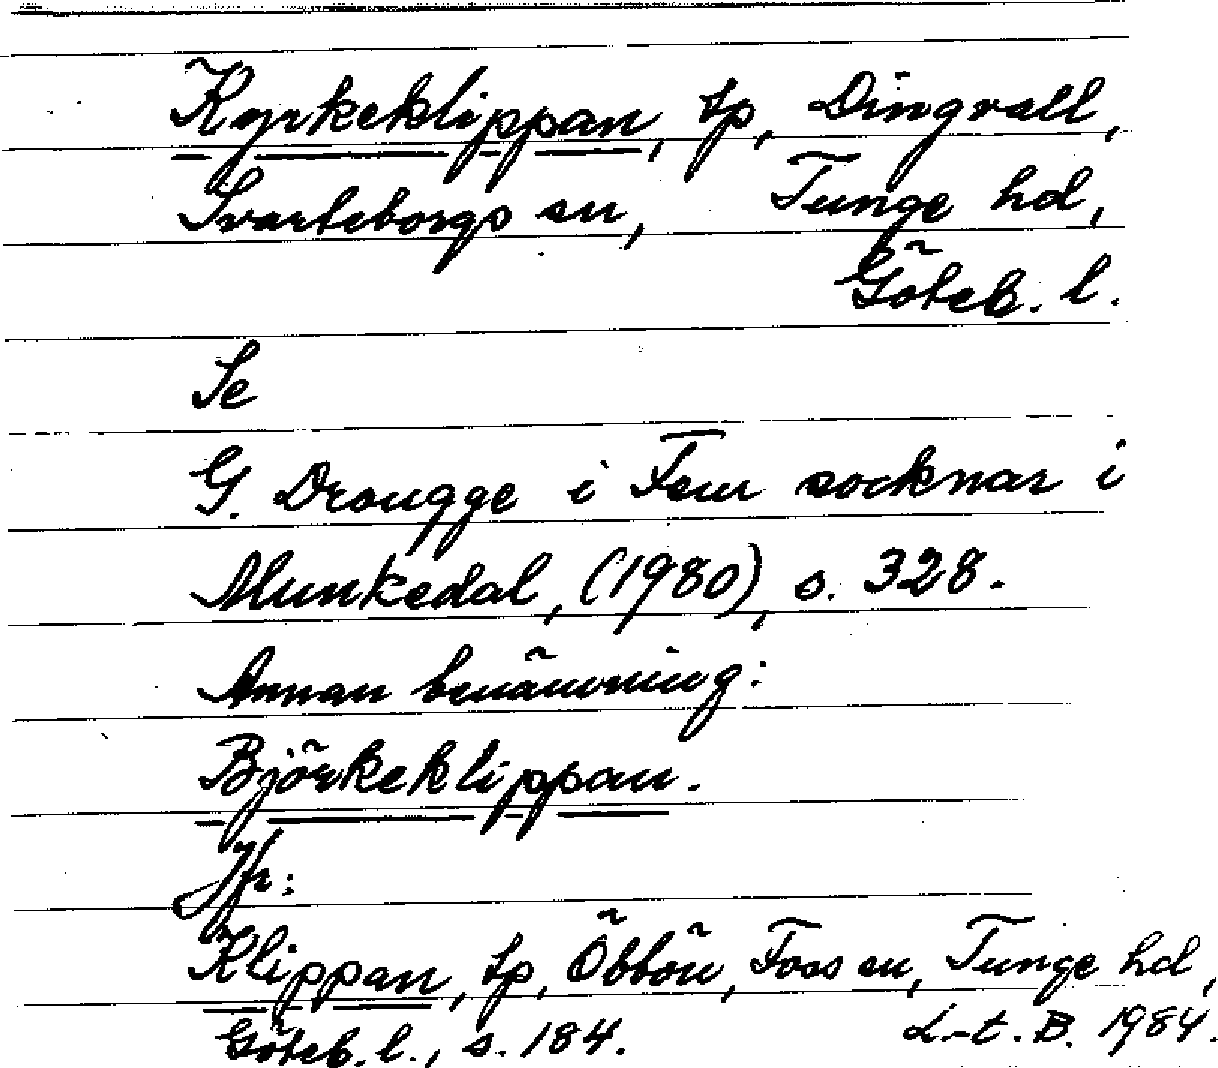 Kyrkeklippan, tp, Dingvall,
Svarteborgs sn, Tunge hd,
Göteb. l.
Se
G. Drougge i Fem socknar i
Munkedal, (1980), s. 328.
Annan benämning:
Björkeklippan.
Jfr:
Klippan, tp, Öbbön, Foss sn, Tunge hd,
Göteb. l., s. 184. L-t. B. 1984.